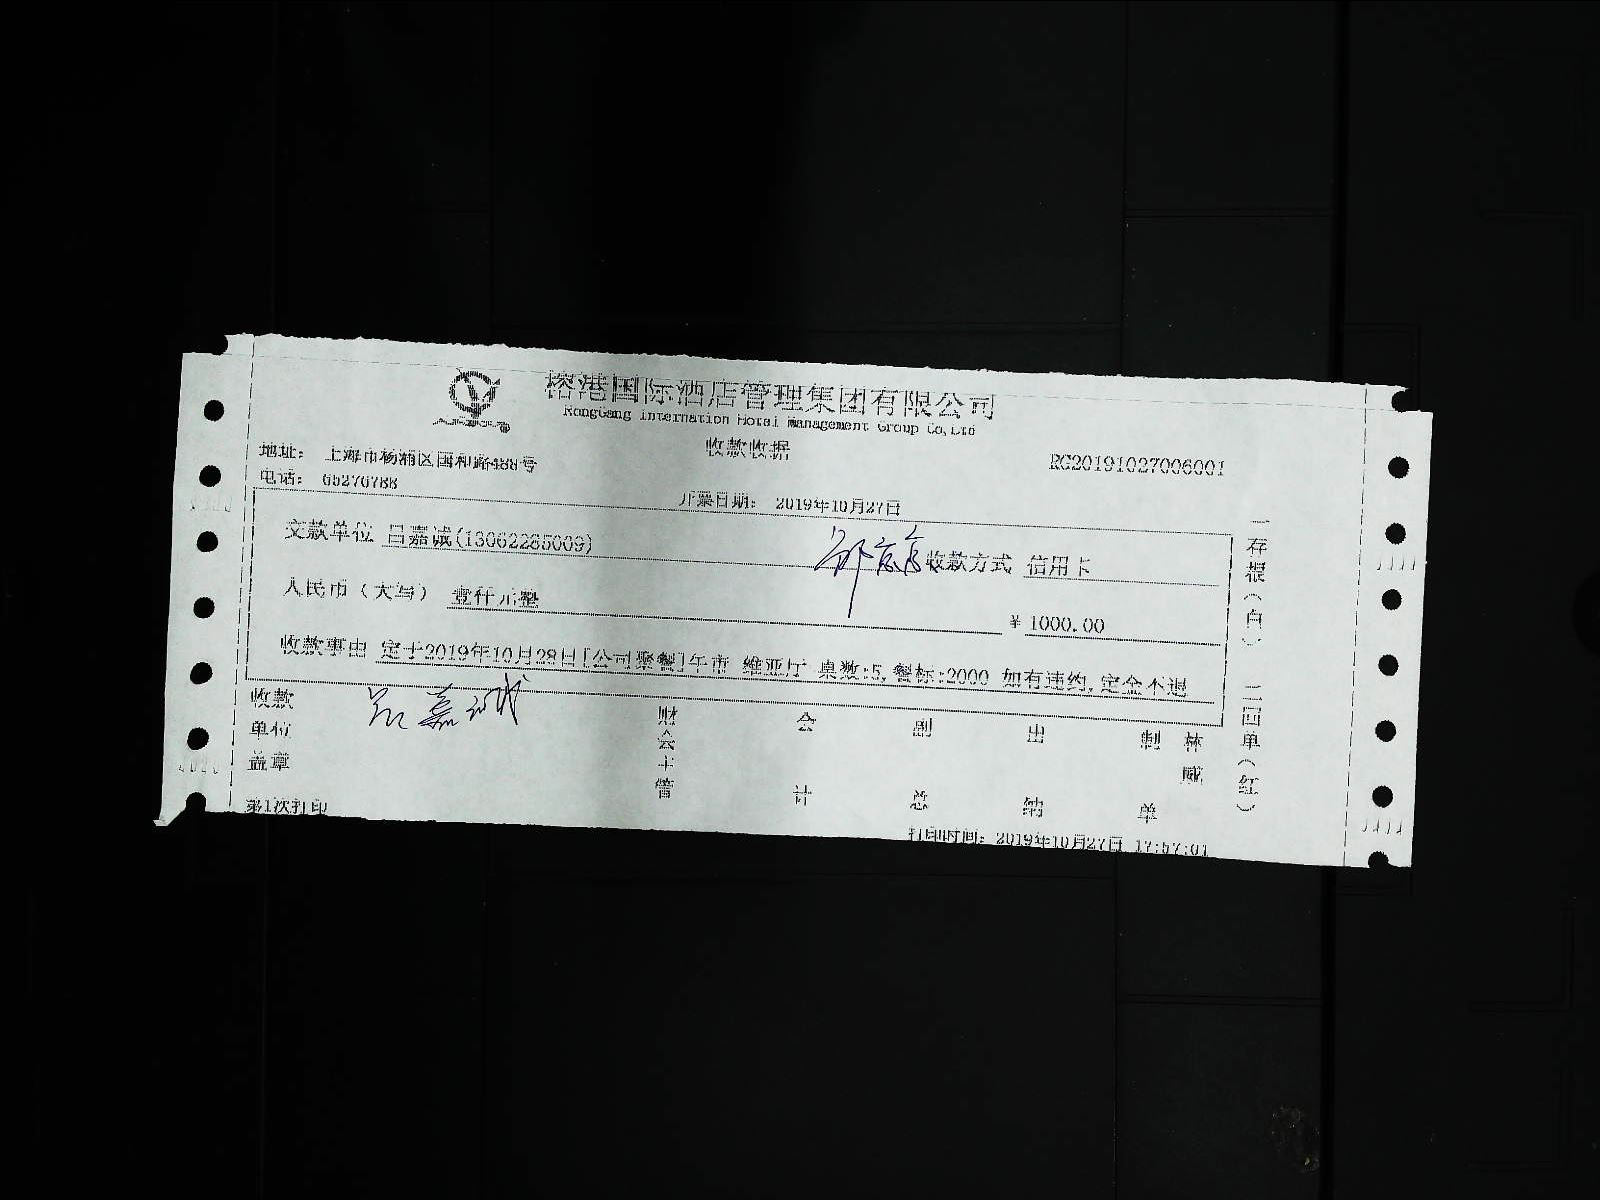 榕港国际酒店管理集团有限公司
RongGang International Hotel Management Group Co,Ltd
收款收据
地址: 上海市杨浦区国和路488号
RG20191027006001
电话: 65276788
开票日期: 2019年10月27日
交款单位 吕嘉诚(13062285009)
收款方式 信用卡
人民币(大写) 壹仟元整
¥ 1000.00
收款事由 定于2019年10月28日[公司聚餐]午市 维亚厅 桌数:5,餐标:2000 如有违约,定金不退
收款单位盖章
吕嘉诚
财会主管
会计
副总
出纳
制单
林威
一存根(白) 二四单(红)
第1次打印
打印时间: 2019年10月27日 17:57:01